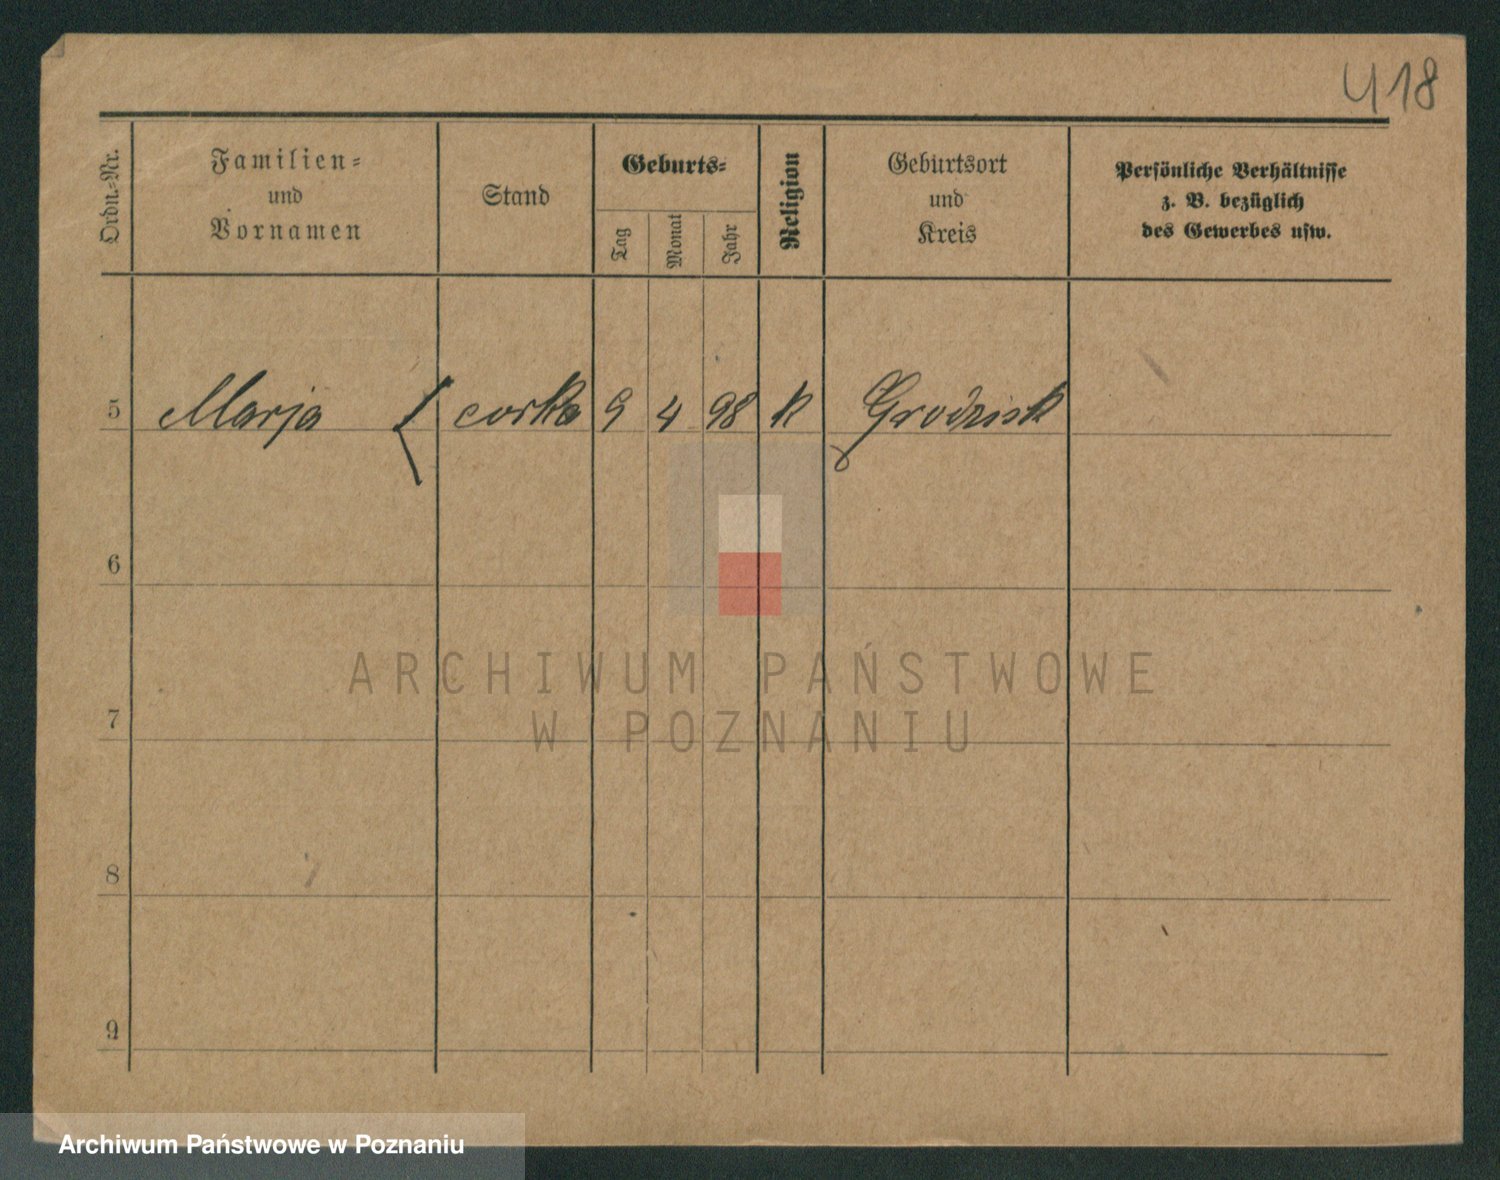 418
Ordn.-Nr.
Familien-
und
Vornamen
Stand
Geburts-
Tag
Monat
Jahr
Religion
Geburtsort
und
Kreis
Persönliche Verhältnisse
z. B. bezüglich
des Gewerbes usw.
5 Marja corka 9 4 98 k Grodzisk
6
7
8
9
ARCHIWUM PAŃSTWOWE
W POZNANIU
Archiwum Państwowe w Poznaniu